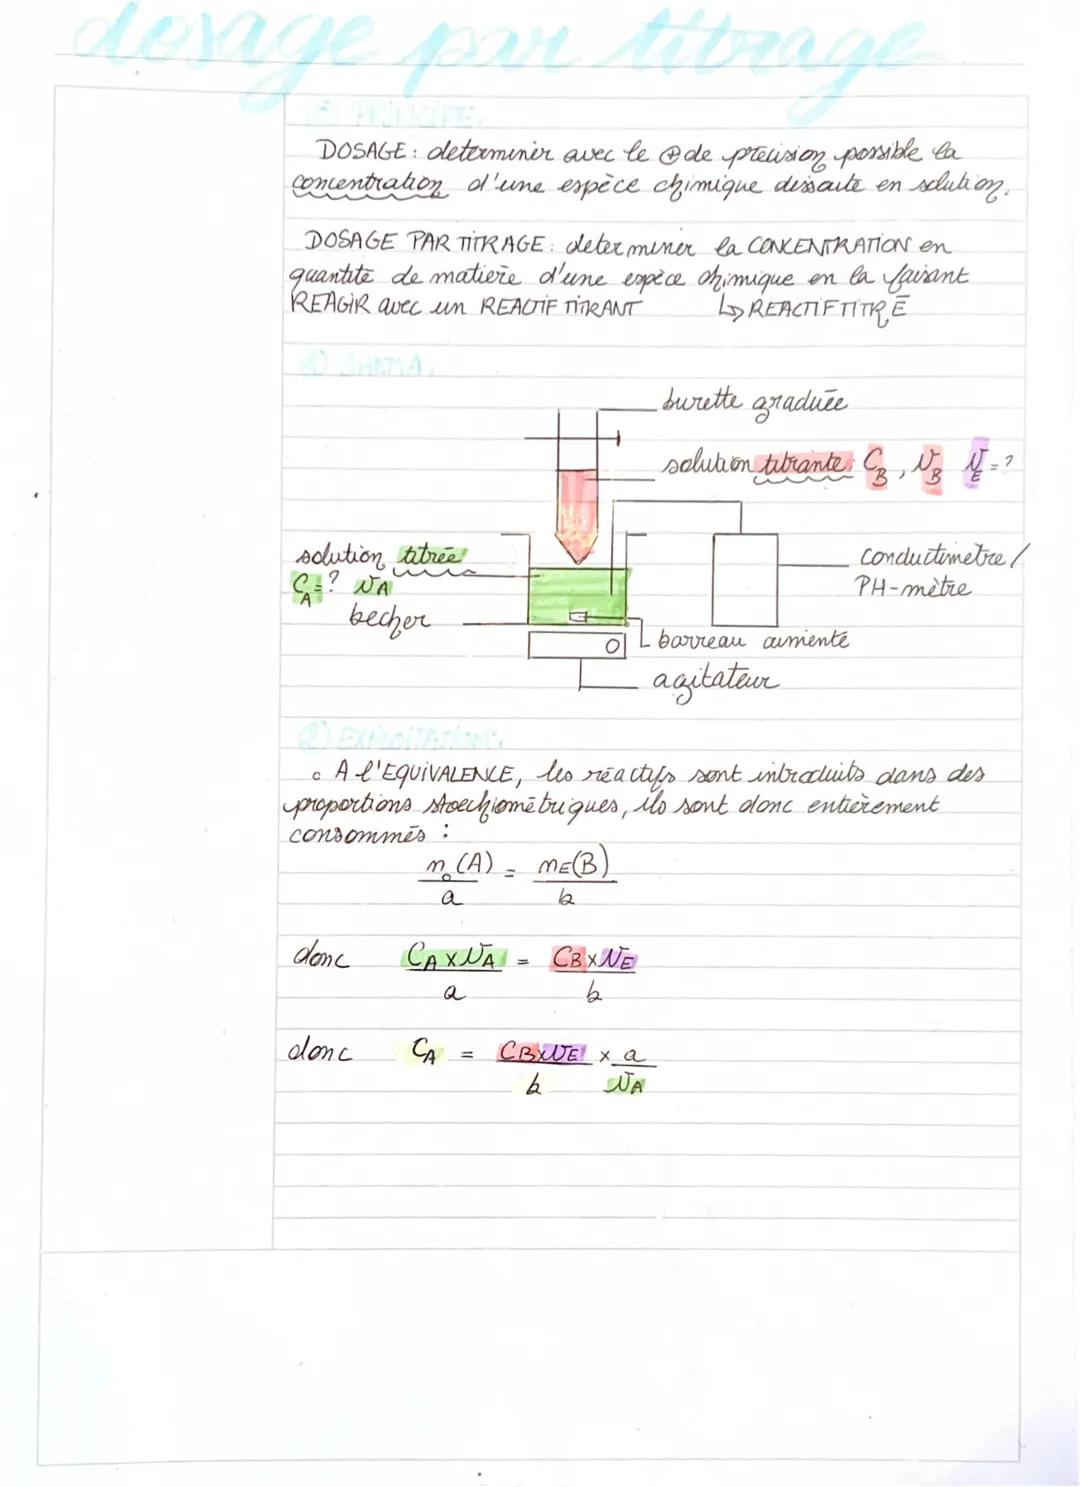 dosage par titrage
① PRINCIPE.
DOSAGE : determiner avec le ⊕ de précision possible la
concentration d'une espèce chimique dissoute en solution.
DOSAGE PAR TITRAGE : determiner la CONCENTRATION en
quantité de matière d'une espèce chimique en la faisant
REAGIR avec un REACTIF TITRANT ↳ REACTIF TITRÉ
SHEMA.
burette graduée
solution titrante : C_B , V_B V_E = ?
solution titrée
C_A = ? V_A
conductimetre /
PH-mètre
becher
barreau aimenté
agitateur
EXPLOITATION.
∘ A l'EQUIVALENCE, les réactifs sont introduits dans des
proportions stoechiométriques, ils sont donc entièrement
consommés :
n₀(A)/a = n_E(B)/b
donc C_A x V_A / a = C_B x V_E / b
donc C_A = C_B x V_E / b x a / V_A